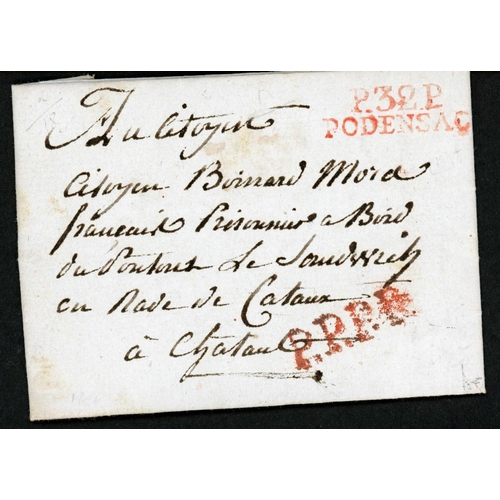 P.32.P
PODENSAC
Au Citoyen
Citoyen Boinard Mord
francais Prisonnier a Bord
du Pontont Le Sandwich
en Rade de Cataux
à Chatau
P.P.P.P.